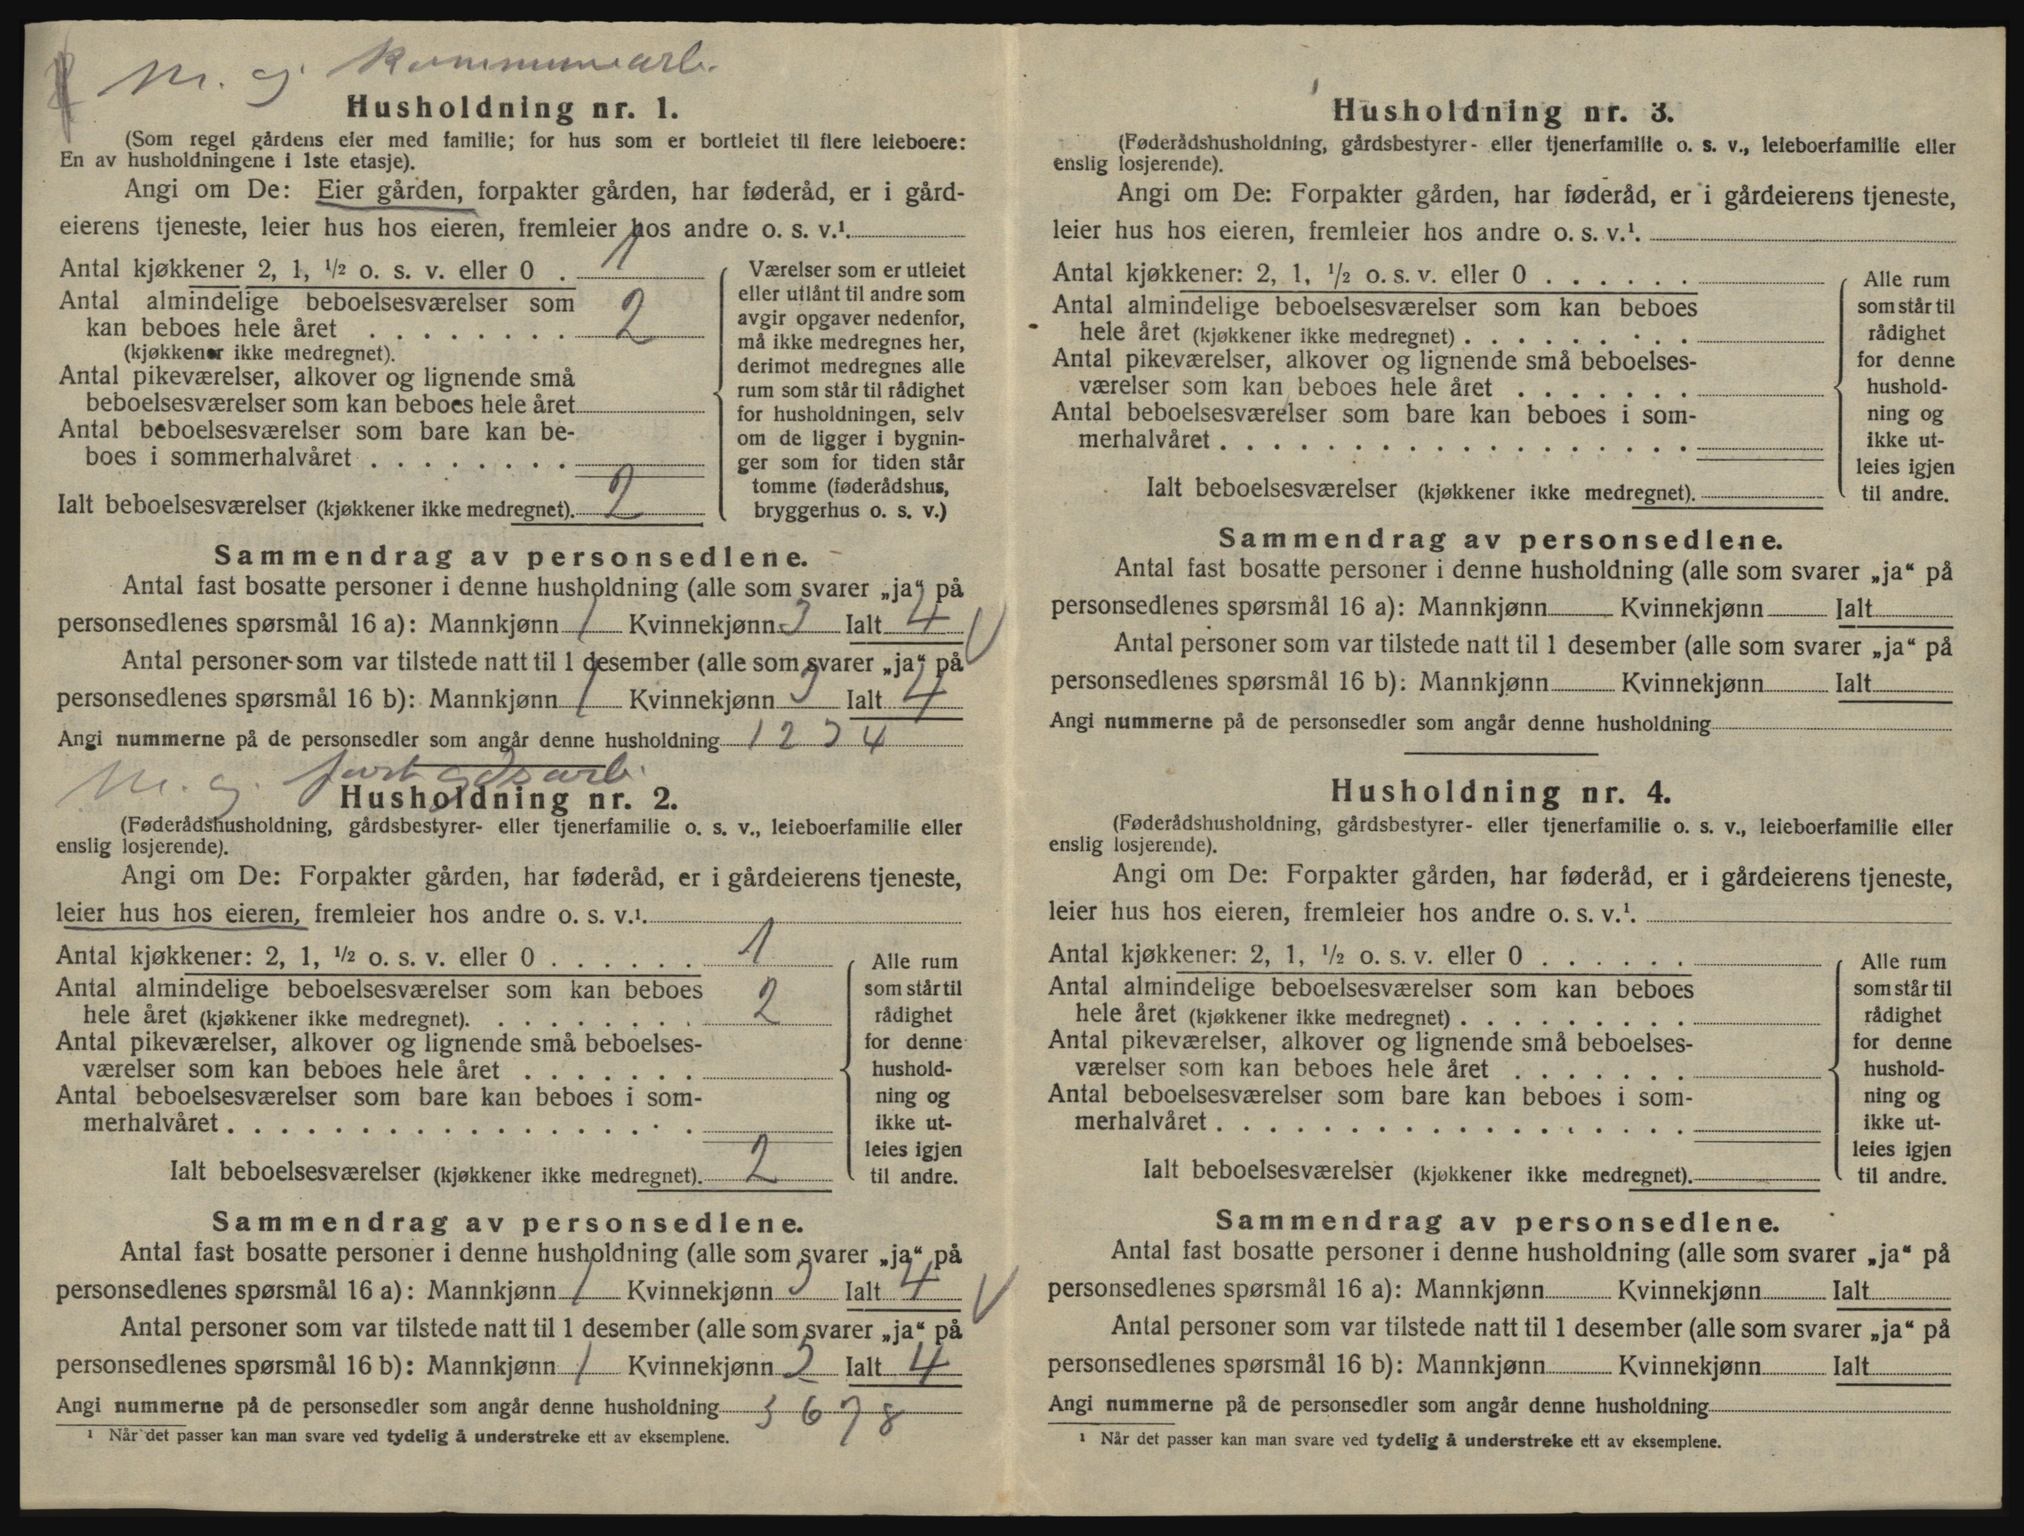 M. g. Kommunearb.
Husholdning nr. 1.
(Som regel gårdens eier med familie; for hus som er bortleiet til flere leieboere:
En av husholdningene i 1ste etasje).
Angi om De: Eier gården, forpakter gården, har føderåd, er i gård-
eierens tjeneste, leier hus hos eieren, fremleier hos andre o. s. v.¹.
Antal kjøkkener 2, 1, ½ o. s. v. eller 0 . 1
Antal almindelige beboelsesværelser som
kan beboes hele året . . . . . . . . 2
(kjøkkener ikke medregnet).
Antal pikeværelser, alkover og lignende små
beboelsesværelser som kan beboes hele året
Antal beboelsesværelser som bare kan be-
boes i sommerhalvåret . . . . . . . .
Ialt beboelsesværelser (kjøkkener ikke medregnet). 2
Værelser som er utleiet
eller utlånt til andre som
avgir opgaver nedenfor,
må ikke medregnes her,
derimot medregnes alle
rum som står til rådighet
for husholdningen, selv
om de ligger i bygnin-
ger som for tiden står
tomme (føderådshus,
bryggerhus o. s. v.)
Sammendrag av personsedlene.
Antal fast bosatte personer i denne husholdning (alle som svarer „ja“ på
personsedlenes spørsmål 16 a): Mannkjønn 1 Kvinnekjønn 3 Ialt 4
Antal personer som var tilstede natt til 1 desember (alle som svarer „ja“ på
personsedlenes spørsmål 16 b): Mannkjønn 1 Kvinnekjønn 3 Ialt 4
Angi nummerne på de personsedler som angår denne husholdning 1 2 3 4
M. g.
Husholdning nr. 2.
(Føderådshusholdning, gårdsbestyrer- eller tjenerfamilie o. s. v., leieboerfamilie eller
enslig losjerende).
Angi om De: Forpakter gården, har føderåd, er i gårdeierens tjeneste,
leier hus hos eieren, fremleier hos andre o. s. v.¹.
Antal kjøkkener: 2, 1, ½ o. s. v. eller 0 . . . . . . 1
Antal almindelige beboelsesværelser som kan beboes
hele året (kjøkkener ikke medregnet). . . . . . . . . 2
Antal pikeværelser, alkover og lignende små beboelses-
værelser som kan beboes hele året . . . . . . .
Antal beboelsesværelser som bare kan beboes i som-
merhalvåret . . . . . . . . . . . . . . . . . .
Ialt beboelsesværelser (kjøkkener ikke medregnet). 2
Alle rum
som står til
rådighet
for denne
hushold-
ning og
ikke ut-
leies igjen
til andre.
Sammendrag av personsedlene.
Antal fast bosatte personer i denne husholdning (alle som svarer „ja“ på
personsedlenes spørsmål 16 a): Mannkjønn 1 Kvinnekjønn 3 Ialt 4
Antal personer som var tilstede natt til 1 desember (alle som svarer „ja“ på
personsedlenes spørsmål 16 b): Mannkjønn 1 Kvinnekjønn 3 Ialt 4
Angi nummerne på de personsedler som angår denne husholdning 5 6 7 8
¹ Når det passer kan man svare ved tydelig å understreke ett av eksemplene.
Husholdning nr. 3.
(Føderådshusholdning, gårdsbestyrer- eller tjenerfamilie o. s. v., leieboerfamilie eller
enslig losjerende).
Angi om De: Forpakter gården, har føderåd, er i gårdeierens tjeneste,
leier hus hos eieren, fremleier hos andre o. s. v.¹.
Antal kjøkkener: 2, 1, ½ o. s. v. eller 0 . . . . . .
Antal almindelige beboelsesværelser som kan beboes
hele året (kjøkkener ikke medregnet) . . . . . . . . .
Antal pikeværelser, alkover og lignende små beboelses-
værelser som kan beboes hele året . . . . . . .
Antal beboelsesværelser som bare kan beboes i som-
merhalvåret . . . . . . . . . . . . . . . . . .
Ialt beboelsesværelser (kjøkkener ikke medregnet).
Alle rum
som står til
rådighet
for denne
hushold-
ning og
ikke ut-
leies igjen
til andre.
Sammendrag av personsedlene.
Antal fast bosatte personer i denne husholdning (alle som svarer „ja“ på
personsedlenes spørsmål 16 a): Mannkjønn Kvinnekjønn Ialt
Antal personer som var tilstede natt til 1 desember (alle som svarer „ja“ på
personsedlenes spørsmål 16 b): Mannkjønn Kvinnekjønn Ialt
Angi nummerne på de personsedler som angår denne husholdning
Husholdning nr. 4.
(Føderådshusholdning, gårdsbestyrer- eller tjenerfamilie o. s. v., leieboerfamilie eller
enslig losjerende).
Angi om De: Forpakter gården, har føderåd, er i gårdeierens tjeneste,
leier hus hos eieren, fremleier hos andre o. s. v.¹.
Antal kjøkkener: 2, 1, ½ o. s. v. eller 0 . . . . . .
Antal almindelige beboelsesværelser som kan beboes
hele året (kjøkkener ikke medregnet) . . . . . . . . .
Antal pikeværelser, alkover og lignende små beboelses-
værelser som kan beboes hele året . . . . . . .
Antal beboelsesværelser som bare kan beboes i som-
merhalvåret . . . . . . . . . . . . . . . . . .
Ialt beboelsesværelser (kjøkkener ikke medregnet).
Alle rum
som står til
rådighet
for denne
hushold-
ning og
ikke ut-
leies igjen
til andre.
Sammendrag av personsedlene.
Antal fast bosatte personer i denne husholdning (alle som svarer „ja“ på
personsedlenes spørsmål 16 a): Mannkjønn Kvinnekjønn Ialt
Antal personer som var tilstede natt til 1 desember (alle som svarer „ja“ på
personsedlenes spørsmål 16 b): Mannkjønn Kvinnekjønn Ialt
Angi nummerne på de personsedler som angår denne husholdning
¹ Når det passer kan man svare ved tydelig å understreke ett av eksemplene.